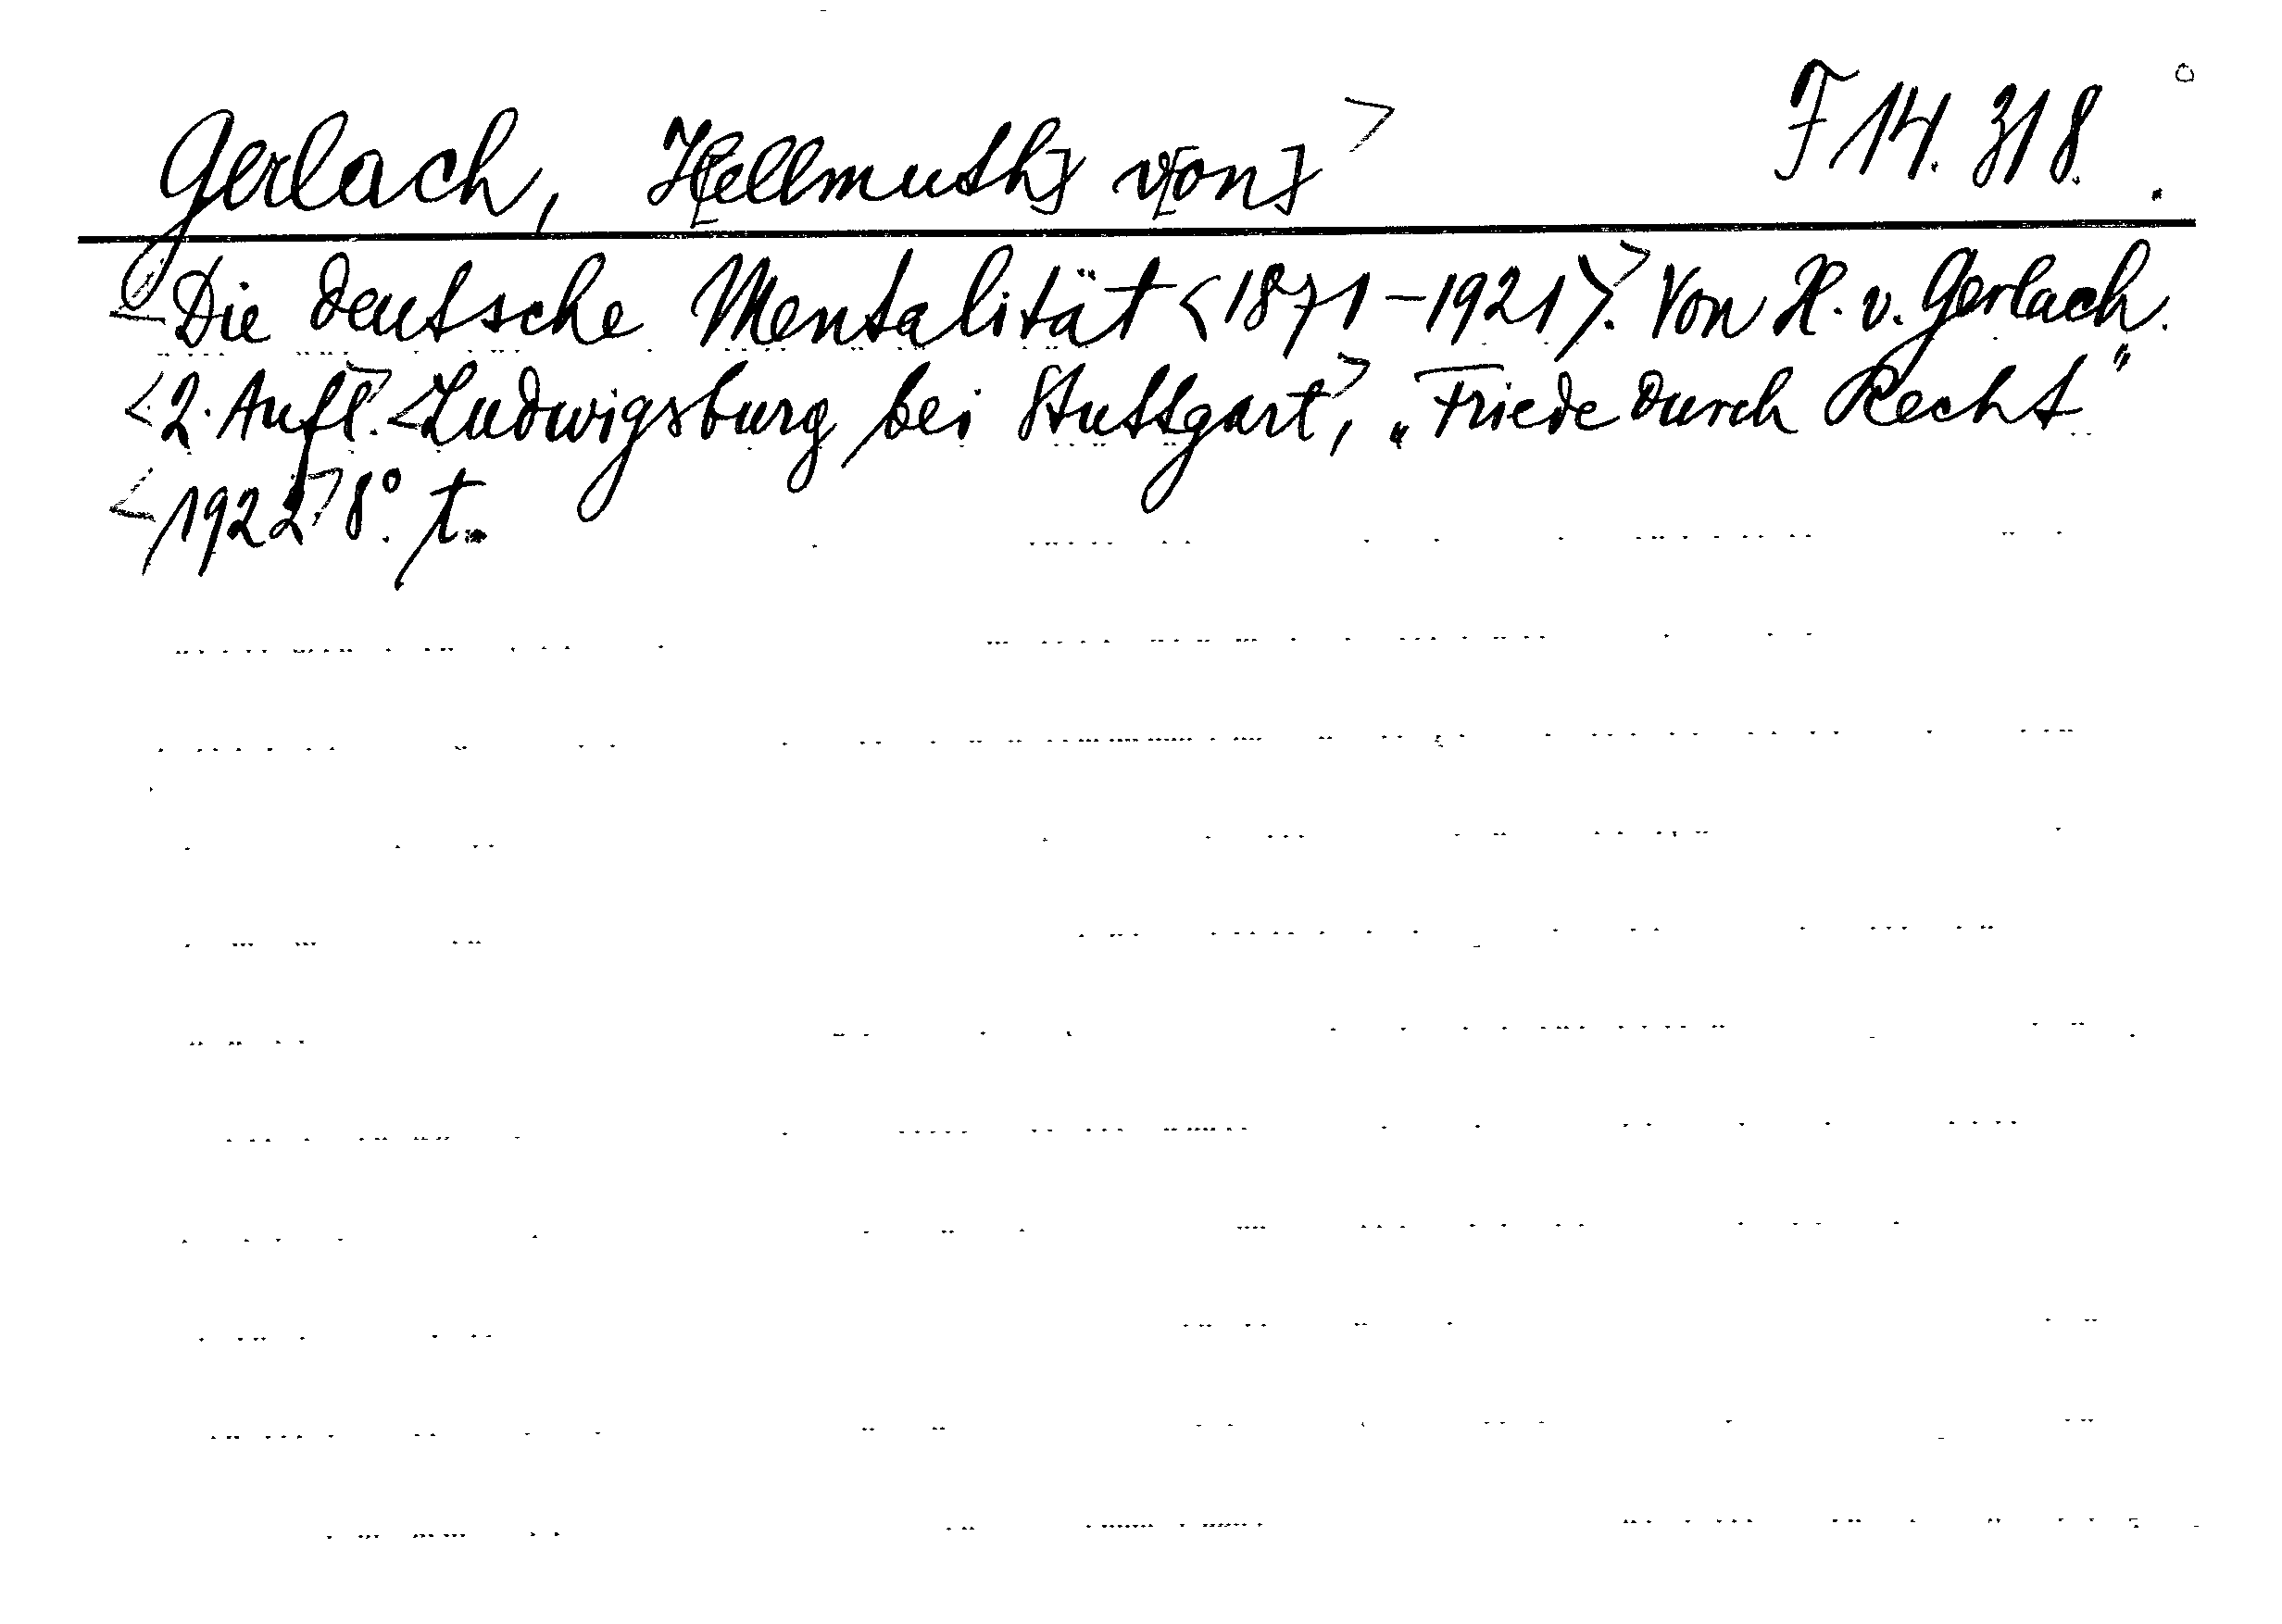 Gerlach, H[ellmuth] v[on]> F 14. 318.
<Die deutsche Mentalität <1871-1921>.> Von H. v. Gerlach.
<2. Aufl.> <Ludwigsburg bei Stuttgart>, „Friede durch Recht"
<1922> 8°. t.